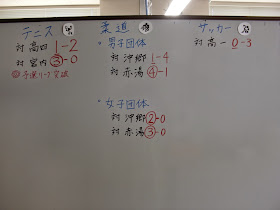 テニス
対 高四 1-2
対 宮内 ③-0
予選リーグ 突破
柔道
・男子団体
対 沖郷 1-4
対 赤湯 ④-1
・女子団体
対 沖郷 ②-0
対 赤湯 ③-0
サッカー
対 高一 0-3